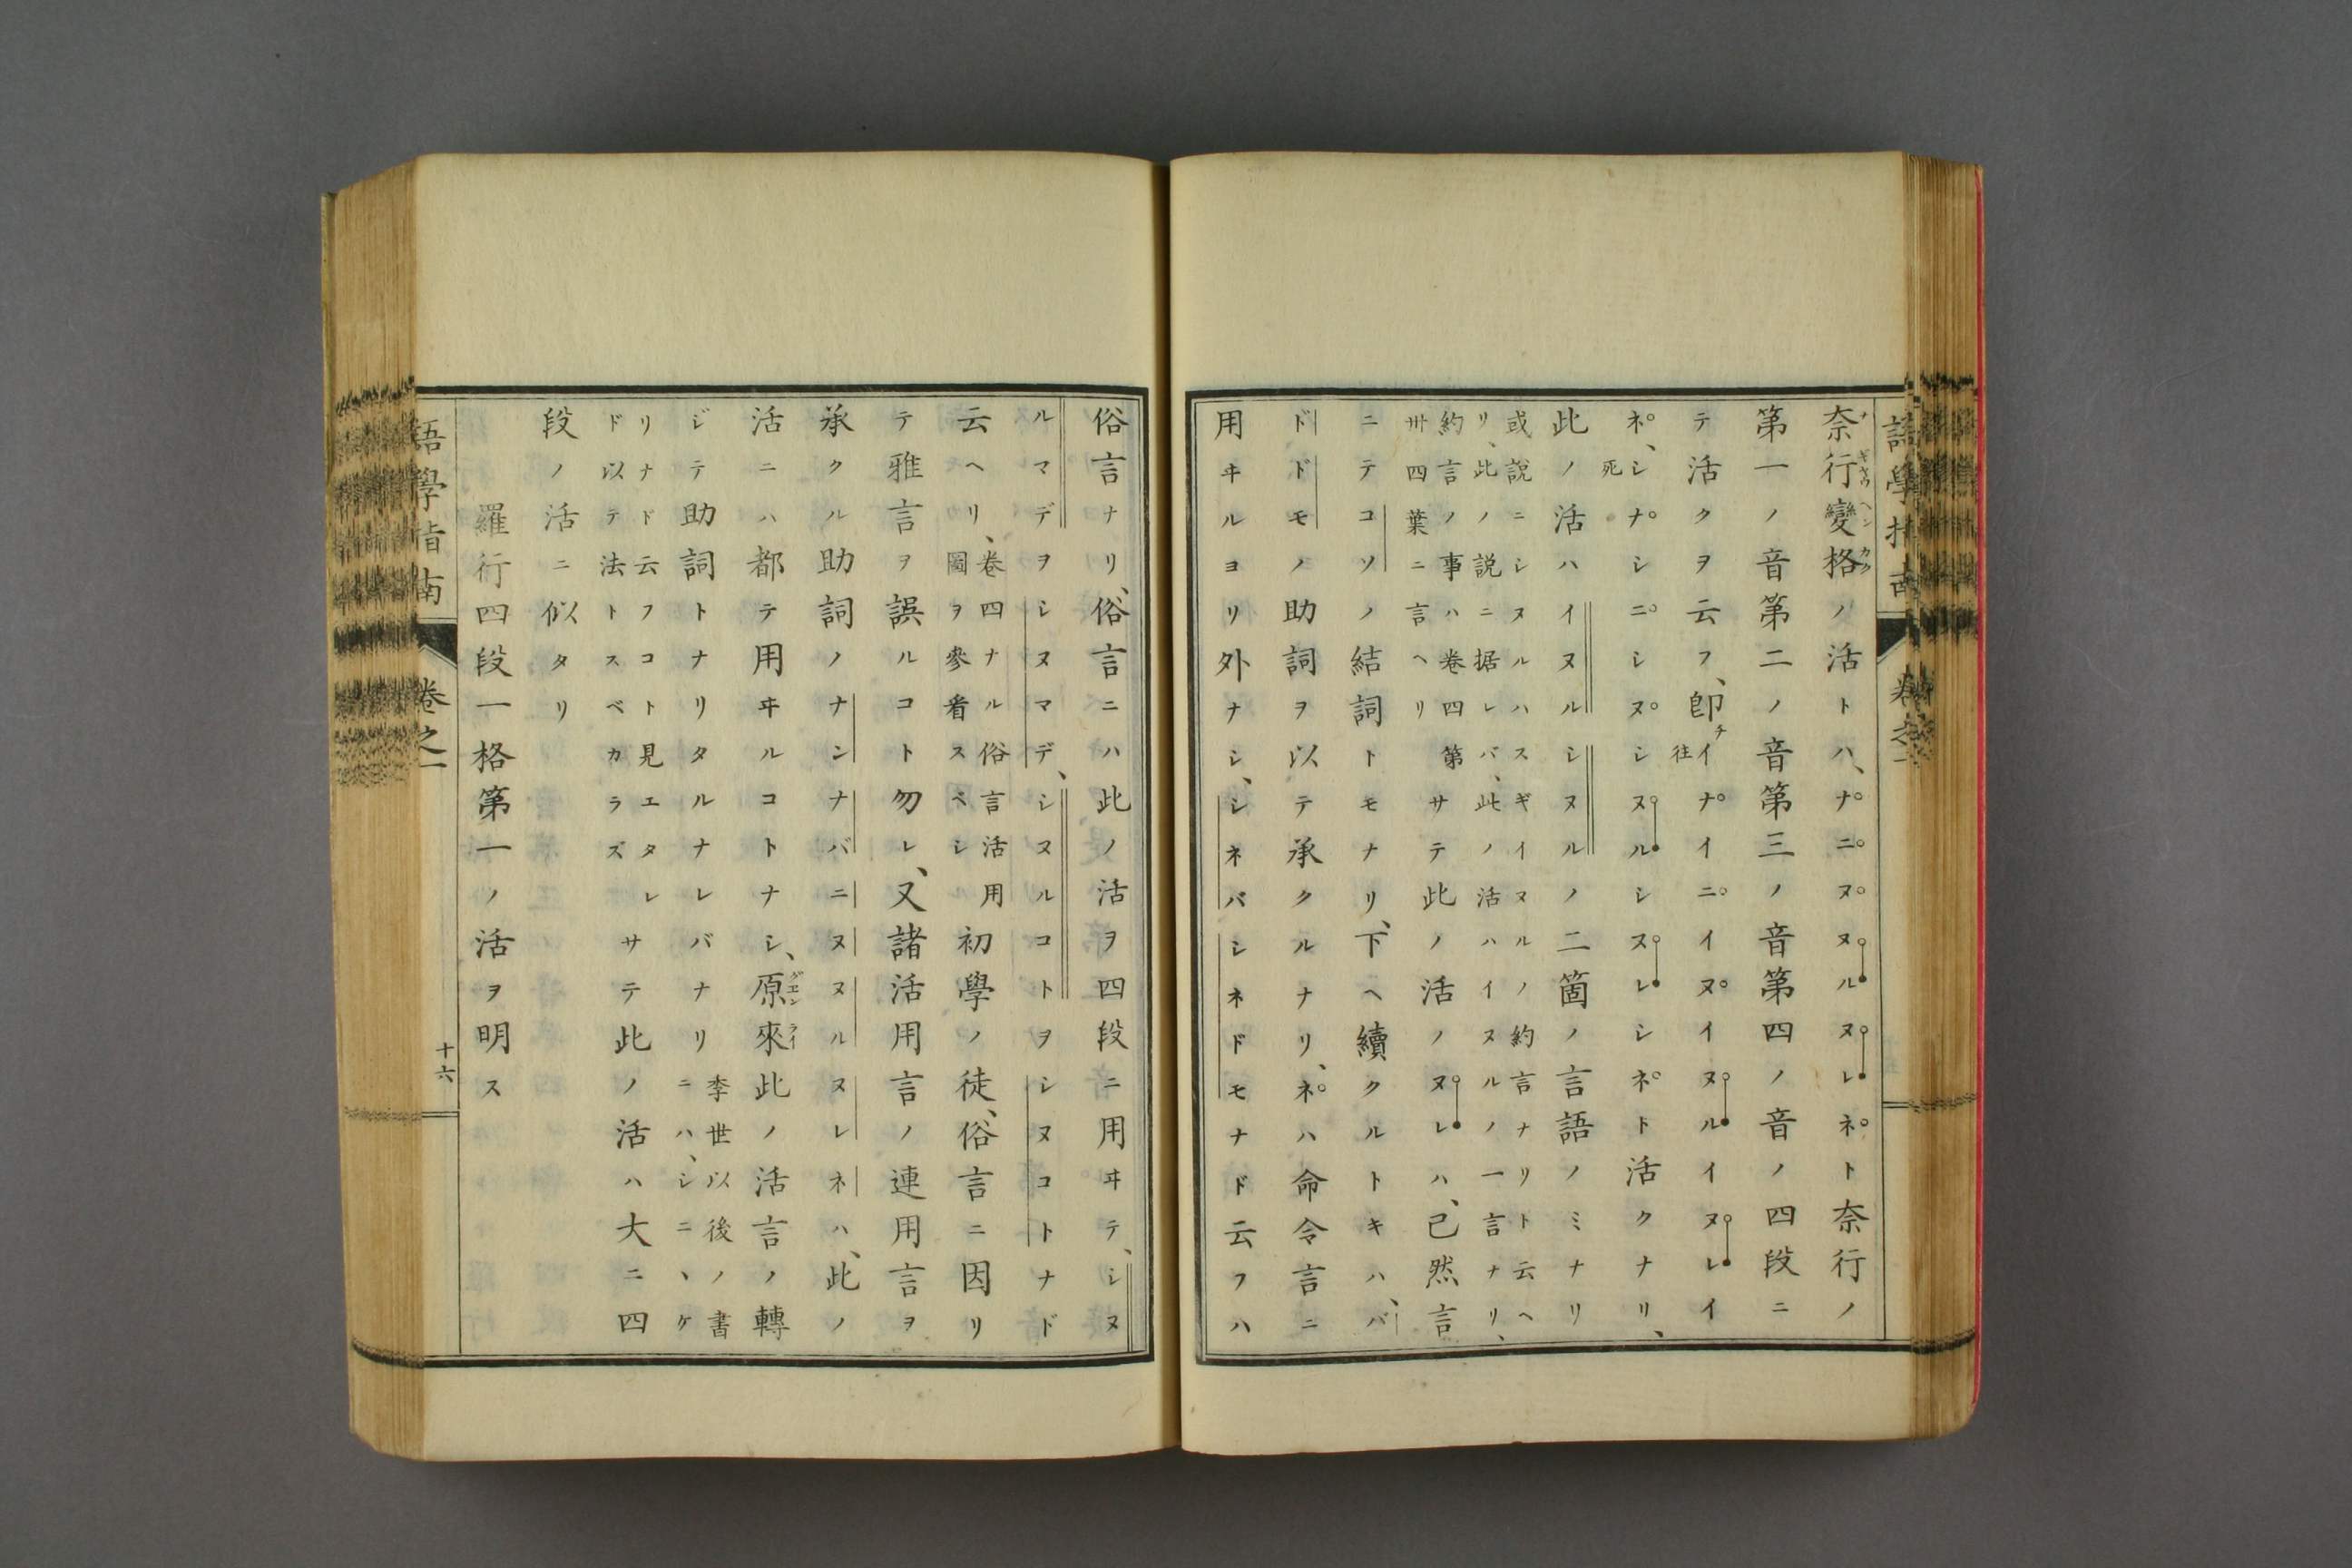 語學指南 卷之一
奈行變格ノ活トハ、ナニヌヌルヌレネト奈行ノ
第一ノ音第二ノ音第三ノ音第四ノ音ノ四段ニ
テ活クヲ云フ、卽チイ往ナイニイヌイヌルイヌレイ
ネ、シ死ナシニシヌシヌルシヌレシネト活クナリ、
此ノ活ハイヌルシヌルノ二箇ノ言語ノミナリ
或說ニシヌルハスギイヌルノ約言ナリト云ヘ
リ、此ノ説ニ据レバ、此ノ活ハイヌルノ一言ナリ、
約言ノ事ハ卷四第
卅四葉ニ言ヘリ
サテ此ノ活ノヌレハ、已然言
ニテコソノ結詞トモナリ、下ヘ續クルトキハ、バ
ドドモノ助詞ヲ以テ承クルナリ、ネハ命令言ニ
用ヰルヨリ外ナシ、シネバシネドモナド云フハ
俗言ナリ、俗言ニハ此ノ活ヲ四段ニ用ヰテ、シヌ
ルマデヲシヌマデ、シヌルコトヲシヌコトナド
云ヘリ、
卷四ナル俗言活用
圖ヲ參看スベシ
初學ノ徒、俗言ニ因リ
テ雅言ヲ誤ルコト勿レ、又諸活用言ノ連用言ヲ
承クル助詞ノナンナバニヌヌルヌレネハ、此ノ
活ニハ都テ用ヰルコトナシ、原來此ノ活言ノ轉
ジテ助詞トナリタルナレバナリ
李世以後ノ書
ニハ、シニヽケ
リナド云フコト見エタレ
ド以テ法トスベカラズ
サテ此ノ活ハ大ニ四
段ノ活ニ似タリ
羅行四段一格第一ノ活ヲ明ス
語學指南 卷之一 十六